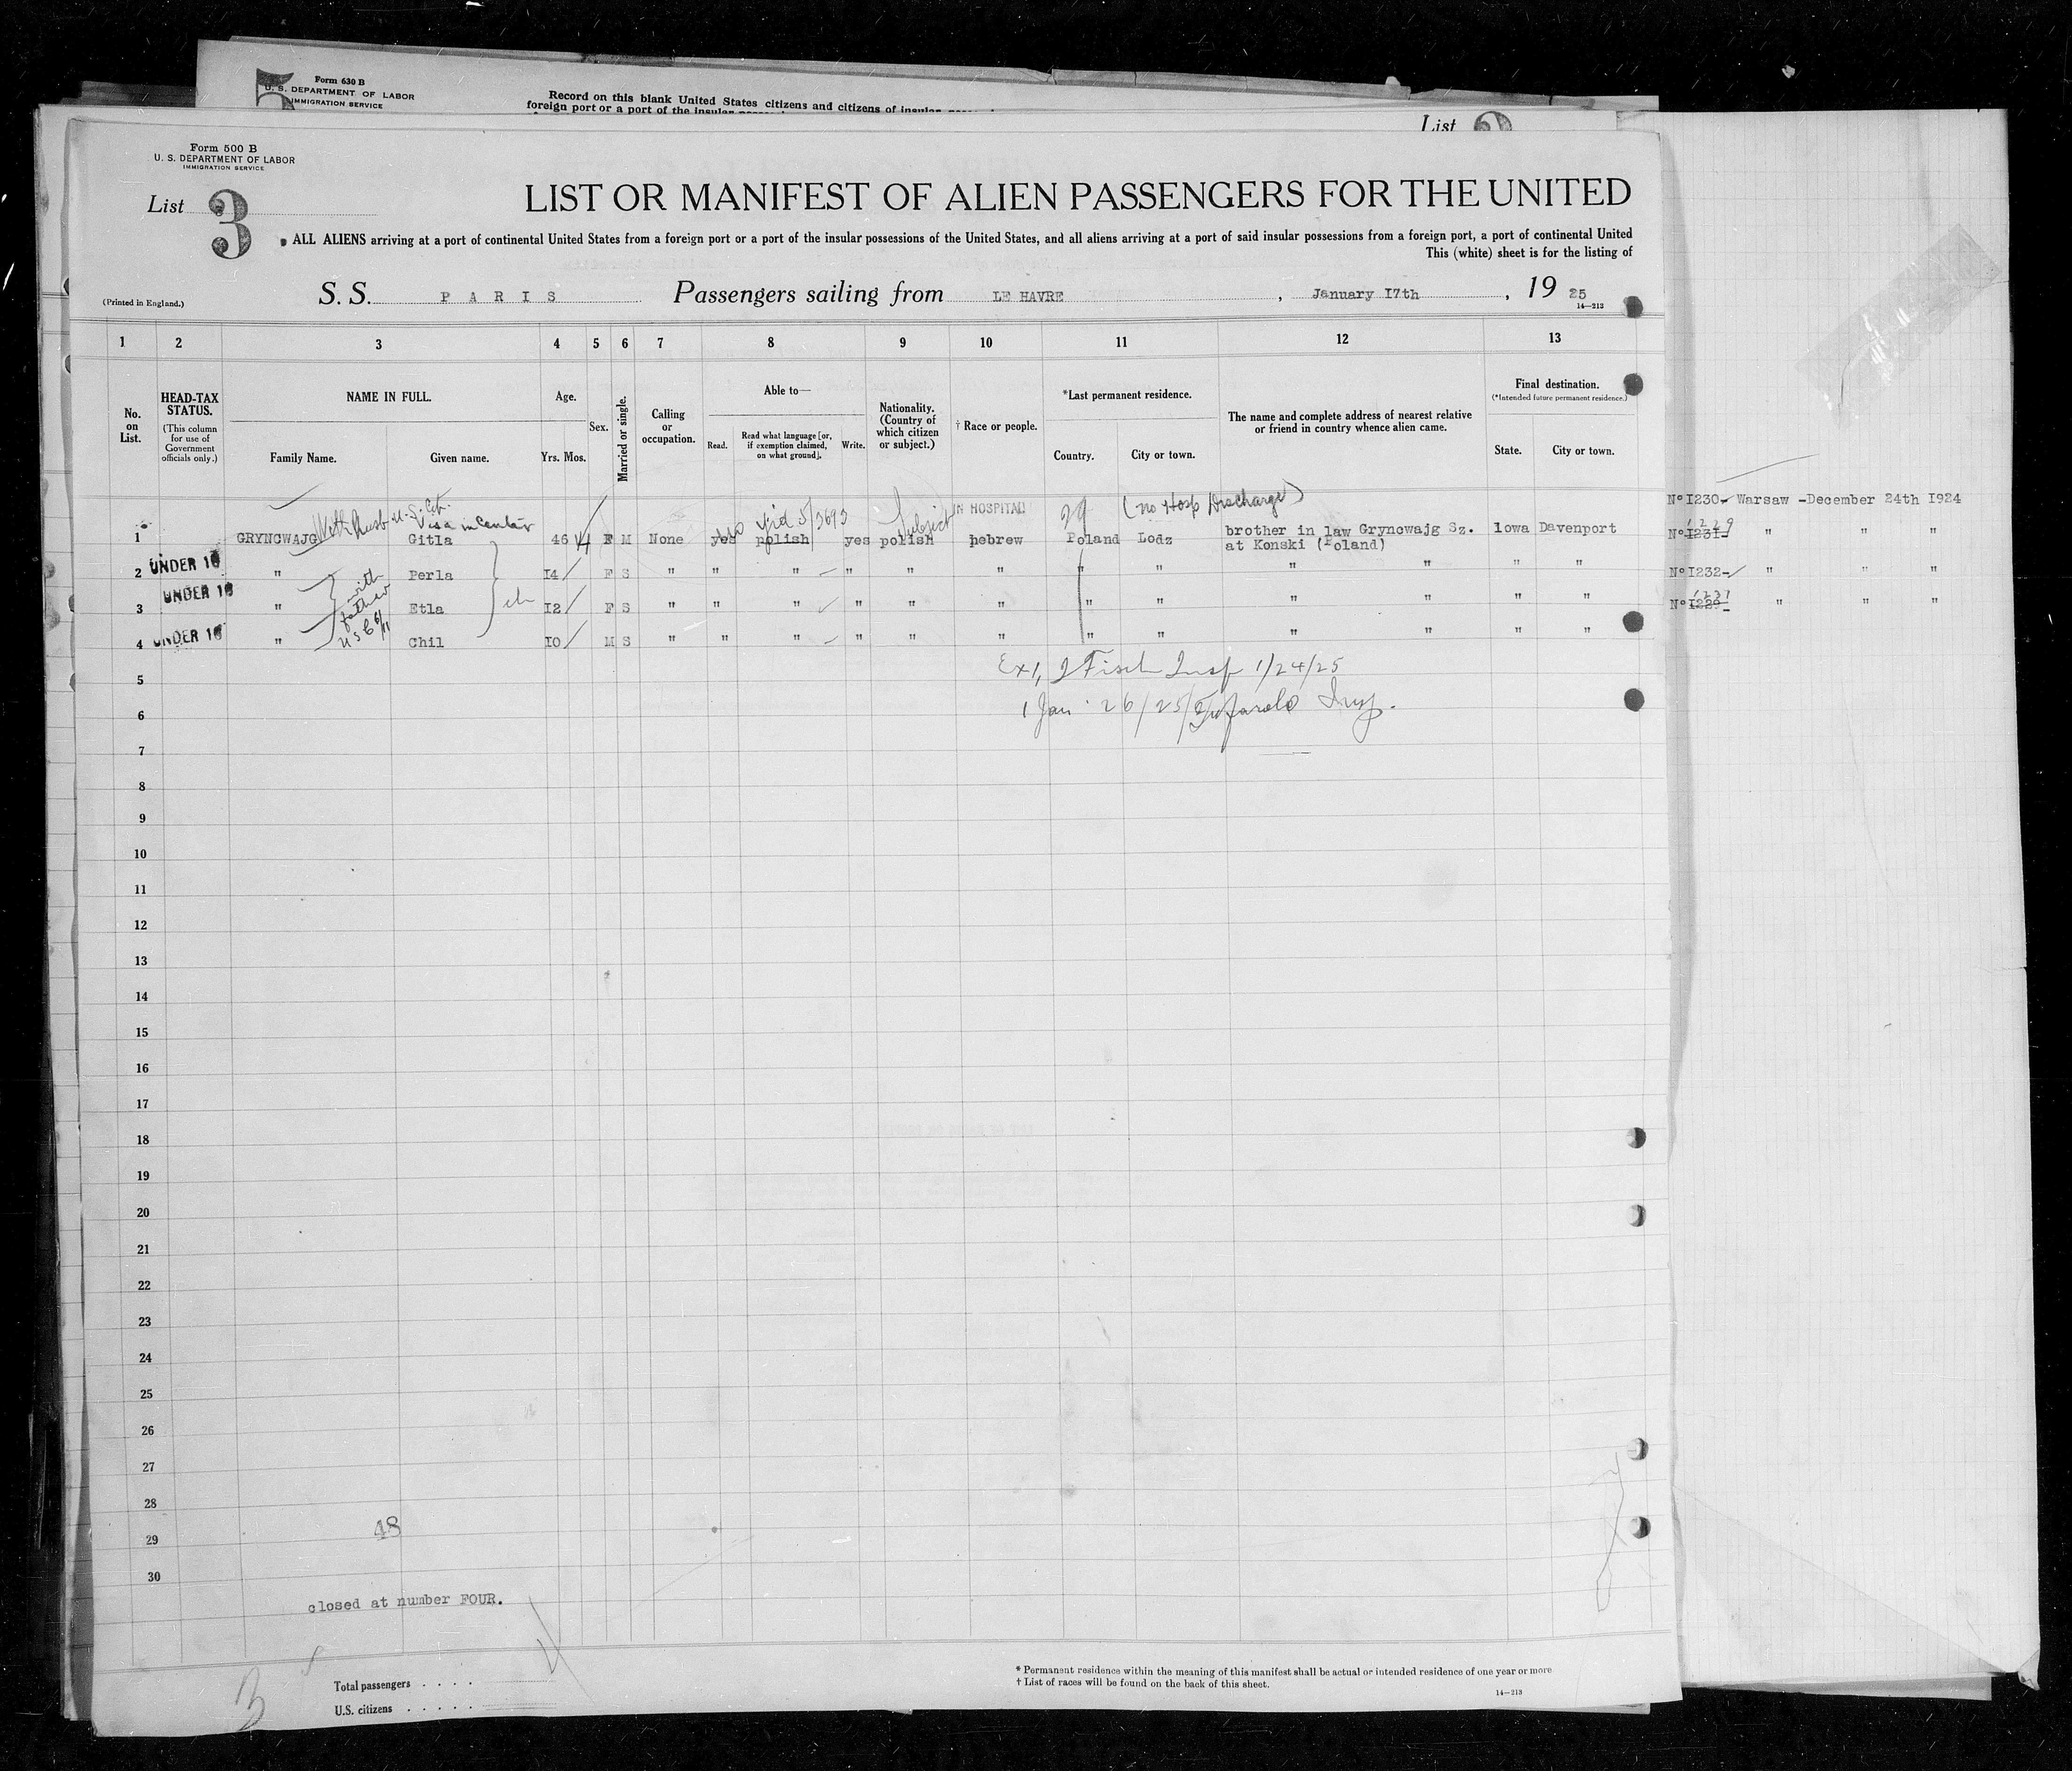 Form 630 B
U. S. DEPARTMENT OF LABOR
IMMIGRATION SERVICE
Record on this blank United States citizens and citizens of insular
foreign port or a port of the insular
List
Form 500 B
U. S. DEPARTMENT OF LABOR
IMMIGRATION SERVICE
List 3
LIST OR MANIFEST OF ALIEN PASSENGERS FOR THE UNITED
ALL ALIENS arriving at a port of continental United States from a foreign port or a port of the insular possessions of the United States, and all aliens arriving at a port of said insular possessions from a foreign port, a port of continental United
This (white) sheet is for the listing of
(Printed in England.)
S. S. PARIS Passengers sailing from LE HAVRE, January 17th, 19 25
14—213
1 2 3 4 5 6 7 8 9 10 11 12 13
No. on List.
HEAD-TAX STATUS.
(This column for use of Government officials only.)
NAME IN FULL.
Family Name. Given name.
Age.
Yrs. Mos.
Sex.
Married or single.
Calling or occupation.
Able to—
Read. Read what language [or, if exemption claimed, on what ground]. Write.
Nationality. (Country of which citizen or subject.)
† Race or people.
*Last permanent residence.
Country. City or town.
The name and complete address of nearest relative or friend in country whence alien came.
Final destination.
(*Intended future permanent residence.)
State. City or town.
With Husb U.S. Cit.
Visa in Center
no Yid 5/3693
Subject
IN HOSPITAL
29
(no Hosp Discharge)
No 1230- Warsaw -December 24th 1924
1 GRYNCWAJG Gitla 46 F M None yes polish yes polish hebrew Poland Lodz brother in law Gryncwajg Sz. at Konski (Poland) Iowa Davenport
1229
No 1231- " " "
2 UNDER 16 " Perla 14 F S " " " " " " " " " " " "
No 1232- " " "
3 UNDER 16 " Etla 12 F S " " " " " " " " " " " "
1231
No 1229- " " "
4 UNDER 16 " Chil 10 M S " " " " " " " " " " " "
with father
USC
Ex1, J Fisch Insp 1/24/25
1 Jan 26/25 Insp.
5
6
7
8
9
10
11
12
13
14
15
16
17
18
19
20
21
22
23
24
25
26
27
28
29
30
48
closed at number FOUR.
3
Total passengers . . . .
U.S. citizens . . . . .
* Permanent residence within the meaning of this manifest shall be actual or intended residence of one year or more
† List of races will be found on the back of this sheet.
14—213